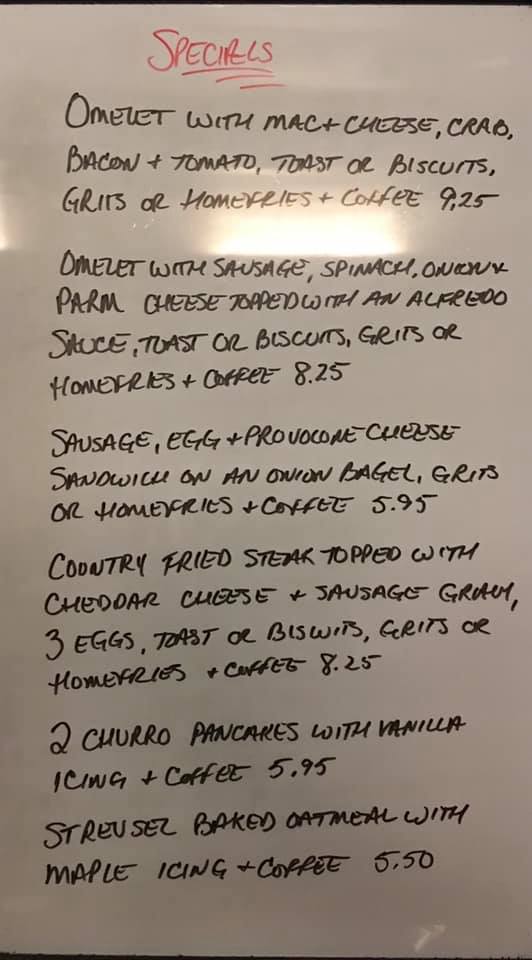 SPECIALS
OMELET WITH MAC + CHEESE, CRAB,
BACON + TOMATO, TOAST OR BISCUITS,
GRITS OR HOMEFRIES + COFFEE 9.25
OMELET WITH SAUSAGE, SPINACH, ONION +
PARM CHEESE TOPPED WITH AN ALFREDO
SAUCE, TOAST OR BISCUITS, GRITS OR
HOMEFRIES + COFFEE 8.25
SAUSAGE, EGG + PROVOLONE CHEESE
SANDWICH ON AN ONION BAGEL, GRITS
OR HOMEFRIES + COFFEE 5.95
COUNTRY FRIED STEAK TOPPED WITH
CHEDDAR CHEESE + SAUSAGE GRAVY,
3 EGGS, TOAST OR BISCUITS, GRITS OR
HOMEFRIES + COFFEE 8.25
2 CHURRO PANCAKES WITH VANILLA
ICING + COFFEE 5.95
STREUSEL BAKED OATMEAL WITH
MAPLE ICING + COFFEE 5.50